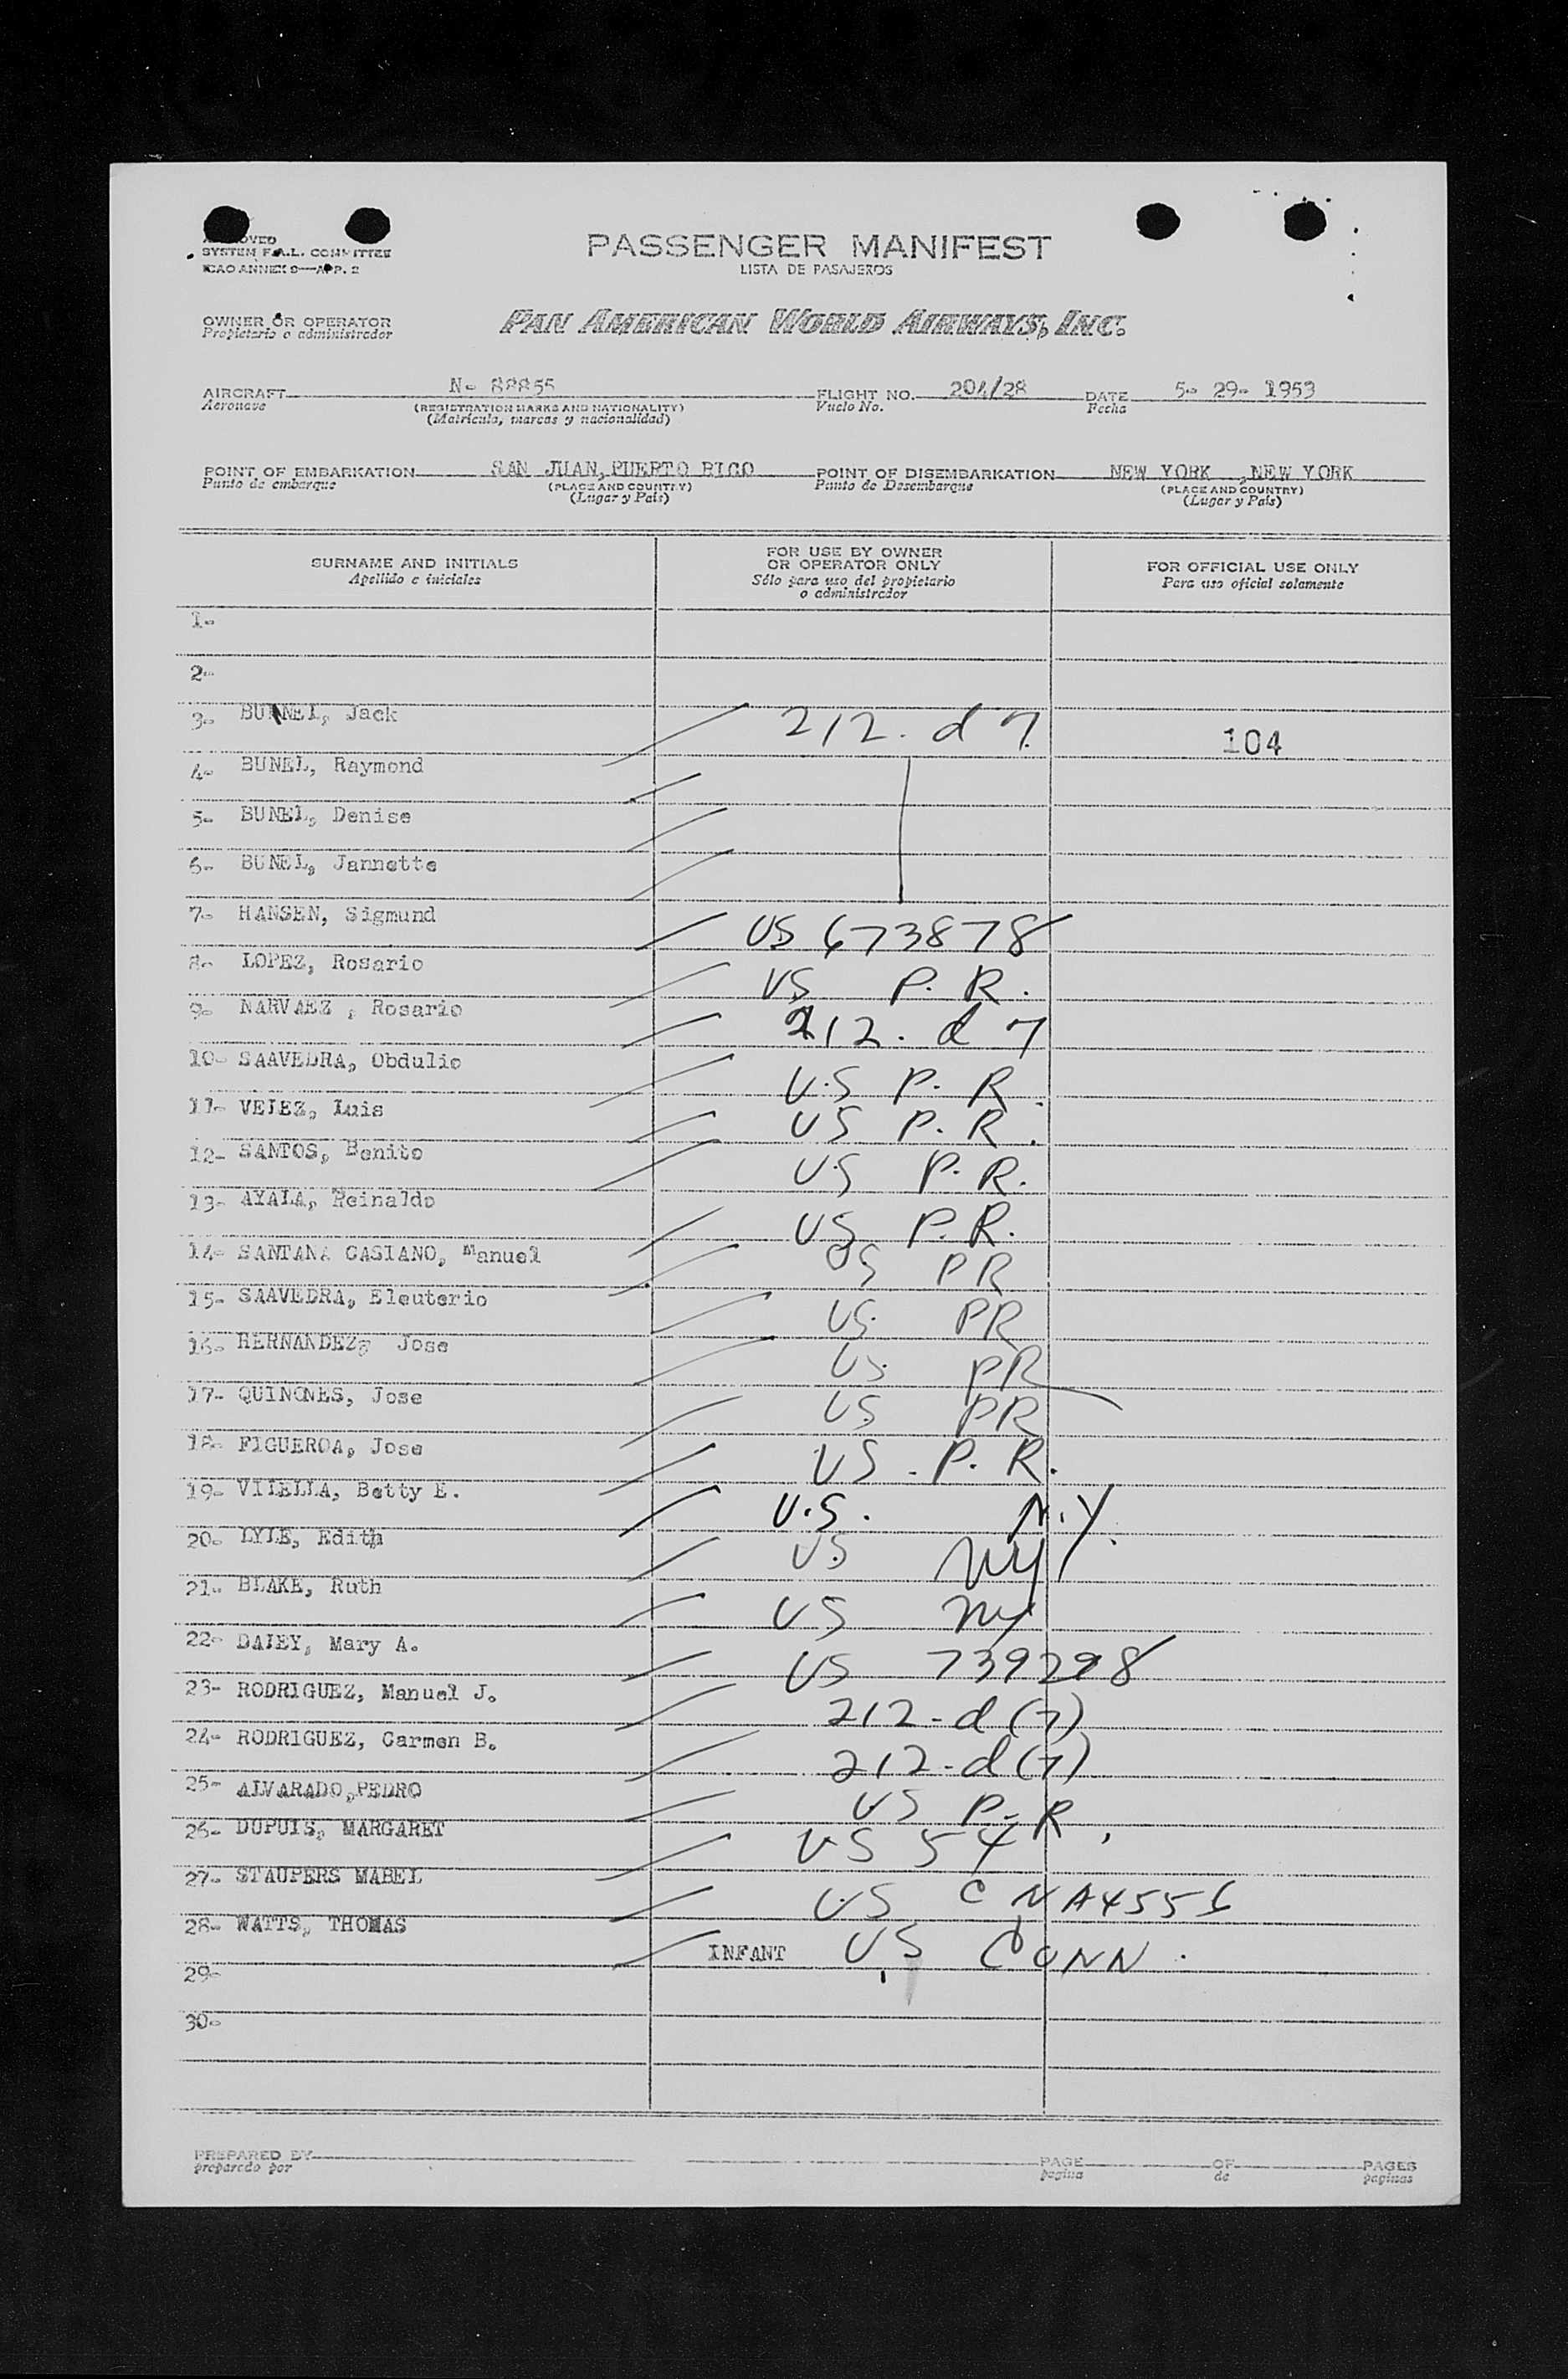 APPROVED
SYSTEM F.A.L. COMMITTEE
ICAO ANNEX 9—APP. 2
PASSENGER MANIFEST
LISTA DE PASAJEROS
OWNER OR OPERATOR
Propietario o administrador
PAN AMERICAN WORLD AIRWAYS, INC.
AIRCRAFT N- 88855 FLIGHT NO. 204/28 DATE 5- 29- 1953
Aeronave (REGISTRATION MARKS AND NATIONALITY) Vuelo No. Fecha
(Matrícula, marcas y nacionalidad)
POINT OF EMBARKATION SAN JUAN, PUERTO RICO POINT OF DISEMBARKATION NEW YORK ,NEW YORK
Punto de embarque (PLACE AND COUNTRY) Punto de Desembarque (PLACE AND COUNTRY)
(Lugar y País) (Lugar y País)
SURNAME AND INITIALS FOR USE BY OWNER OR OPERATOR ONLY FOR OFFICIAL USE ONLY
Apellido e iniciales Sólo para uso del propietario o administrador Para uso oficial solamente
1-
2-
3- BUNNEL, Jack 212. d 7. 104
4- BUNEL, Raymond
5- BUNEL, Denise
6- BUNEL, Jannette
7- HANSEN, Sigmund US 673878
8- LOPEZ, Rosario US P. R.
9- NARVAEZ , Rosario 212. d 7
10- SAAVEDRA, Obdulio U.S P. R.
11- VELEZ, Luis US P. R.
12- SANTOS, Benito US P. R.
13- AYALA, Reinaldo US P.R.
14- SANTANA CASIANO, Manuel US PR
15- SAAVEDRA, Eleuterio US. PR
16- HERNANDEZ, Jose US. PR
17- QUINONES, Jose US PR
18- FIGUEROA, Jose US . P. R.
19- VILELLA, Betty E. U.S. N.Y.
20- LYLE, Edith US NY
21- BLAKE, Ruth US NY
22- DALEY, Mary A. US 739298
23- RODRIGUEZ, Manuel J. 212-d(7)
24- RODRIGUEZ, Carmen B. 212-d(7)
25- ALVARADO,PEDRO US P-R.
26- DUPUIS, MARGARET US 54
27- STAUPERS MABEL US C NA4556
28- WATTS, THOMAS INFANT US CONN.
29-
30-
PREPARED BY PAGE OF PAGES
preparado por pagina de paginas